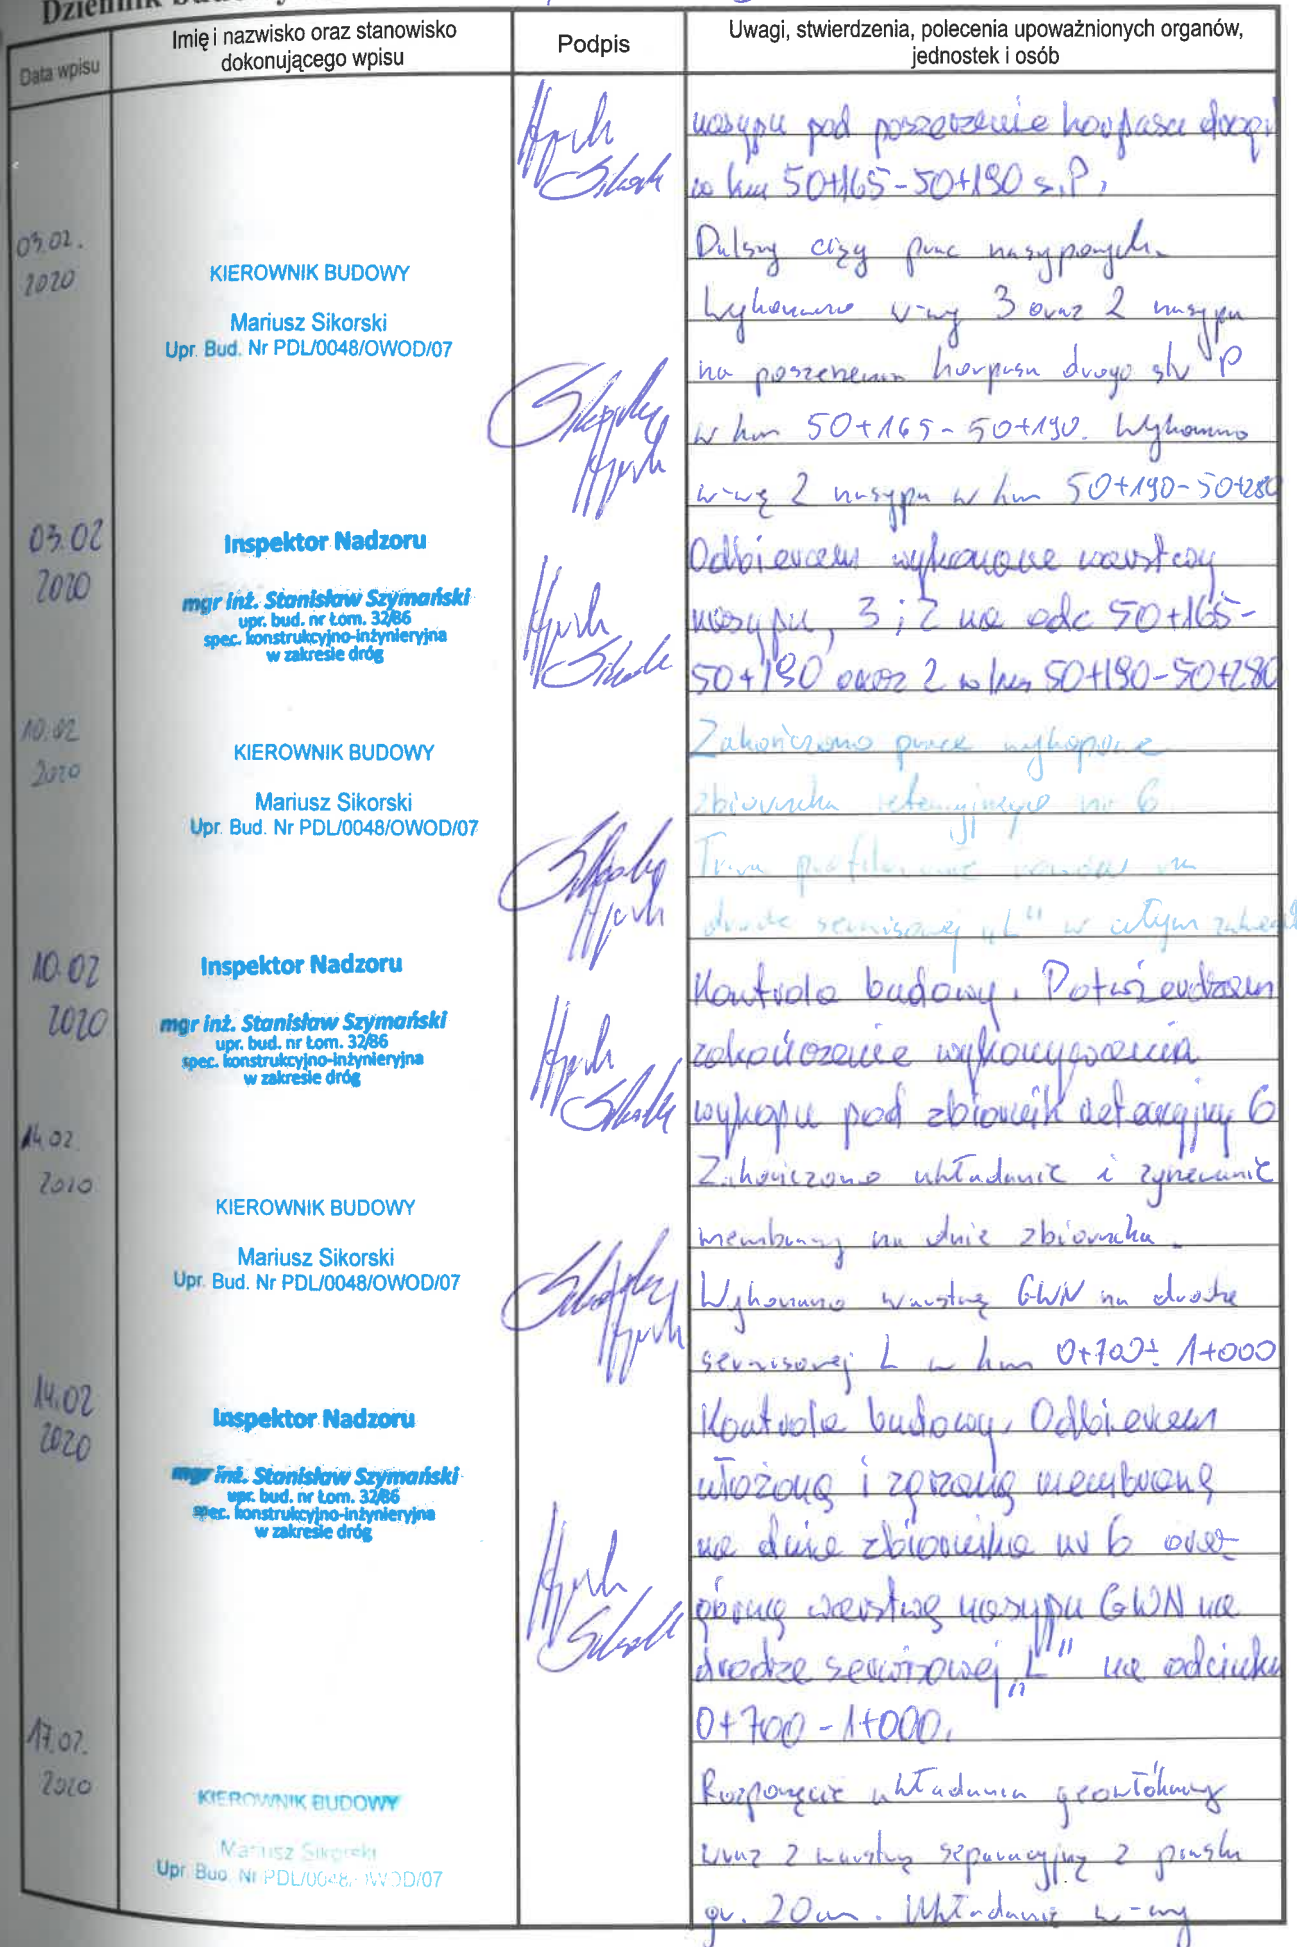 Dziennik
Data wpisu
Imię i nazwisko oraz stanowisko
dokonującego wpisu
Podpis
Uwagi, stwierdzenia, polecenia upoważnionych organów,
jednostek i osób
nasypu pod poszerzenie korpusu drogi
w km 50+165-50+190 s.P.
03.02.
2020
KIEROWNIK BUDOWY
Mariusz Sikorski
Upr. Bud. Nr PDL/0048/OWOD/07
Dalszy ciąg prac nasypowych.
Wykonano w-wy 3 oraz 2 nasypu
na poszerzeniu korpusu drogo str P
w km 50+165-50+190. Wykonano
w-wę 2 nasypu w km 50+190-50+280
03.02
2020
Inspektor Nadzoru
mgr inż. Stanisław Szymański
upr. bud. nr Łom. 32/86
spec. konstrukcyjno-inżynieryjna
w zakresie dróg
Odbieram wykonane warstwy
nasypu, 3 i 2 na odc 50+165-
50+190 oraz 2 w km 50+190-50+280
10.02
2020
KIEROWNIK BUDOWY
Mariusz Sikorski
Upr. Bud. Nr PDL/0048/OWOD/07
Zakończono prace wykopowe
zbiornika retencyjnego nr 6
Trwa profilowanie rowów na
drodze serwisowej „L" w całym zakresie
10.02
2020
Inspektor Nadzoru
mgr inż. Stanisław Szymański
upr. bud. nr Łom. 32/86
spec. konstrukcyjno-inżynieryjna
w zakresie dróg
Kontrola budowy. Potwierdzam
zakończenie wykonywania
wykopu pod zbiornik retencyjny 6
14.02.
2020
KIEROWNIK BUDOWY
Mariusz Sikorski
Upr. Bud. Nr PDL/0048/OWOD/07
Zakończono układanie i zgrzewanie
membrany na dnie zbiornika.
Wykonano warstwę GWN na drodze
serwisowej L w km 0+700÷1+000
14.02
2020
Inspektor Nadzoru
mgr inż. Stanisław Szymański
upr. bud. nr Łom. 32/86
spec. konstrukcyjno-inżynieryjna
w zakresie dróg
Kontrola budowy. Odbieram
ułożoną i zgrzaną membraną
na dnie zbiornika nr 6 oraz
górną warstwę nasypu GWN na
drodze serwisowej „L" na odcinku
0+700-1+000.
17.02.
2020
KIEROWNIK BUDOWY
Mariusz Sikorski
Upr. Bud. Nr PDL/0048/OWOD/07
Rozpoczęcie układania geowłókniny
wraz z warstwą separacyjną z piasku
gr. 20cm. Układanie w-wy